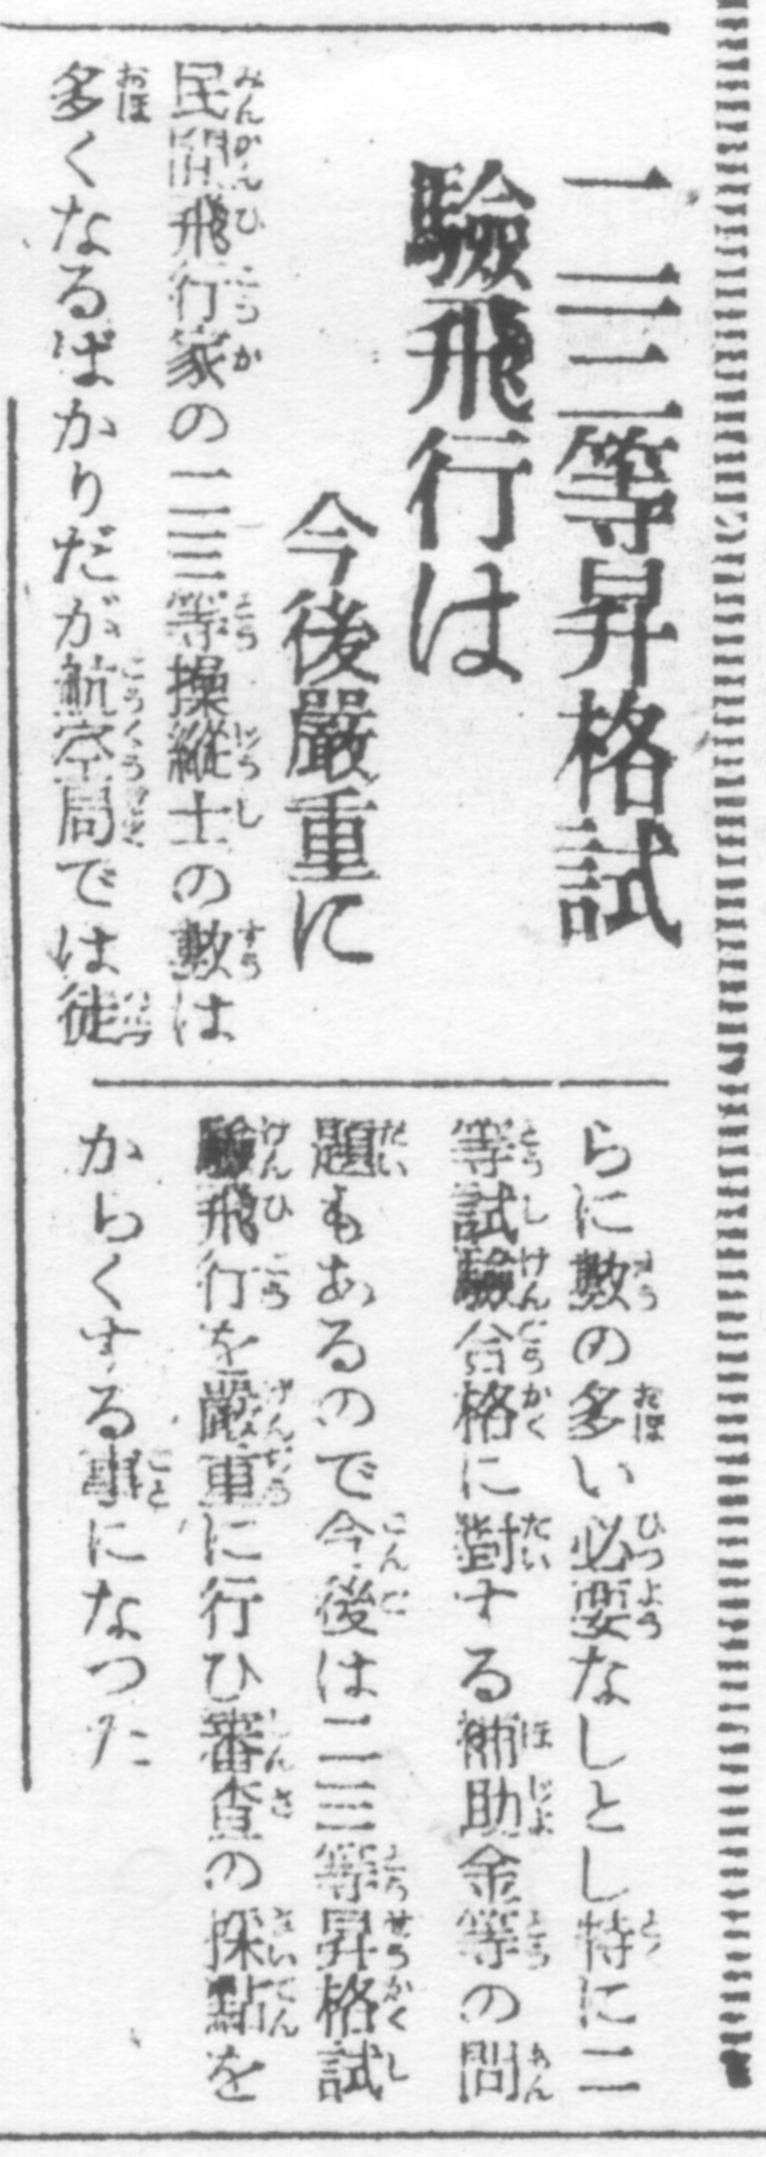 二三等昇格試
驗飛行は
今後嚴重に
民間飛行家の二三等操縱士の數は
多くなるばかりだが航空局では徒
らに數の多い必要なしとし特に二
等試驗合格に對する補助金等の問
題もあるので今後は二三等昇格試
驗飛行を嚴重に行ひ審査の採點を
からくする事になつた